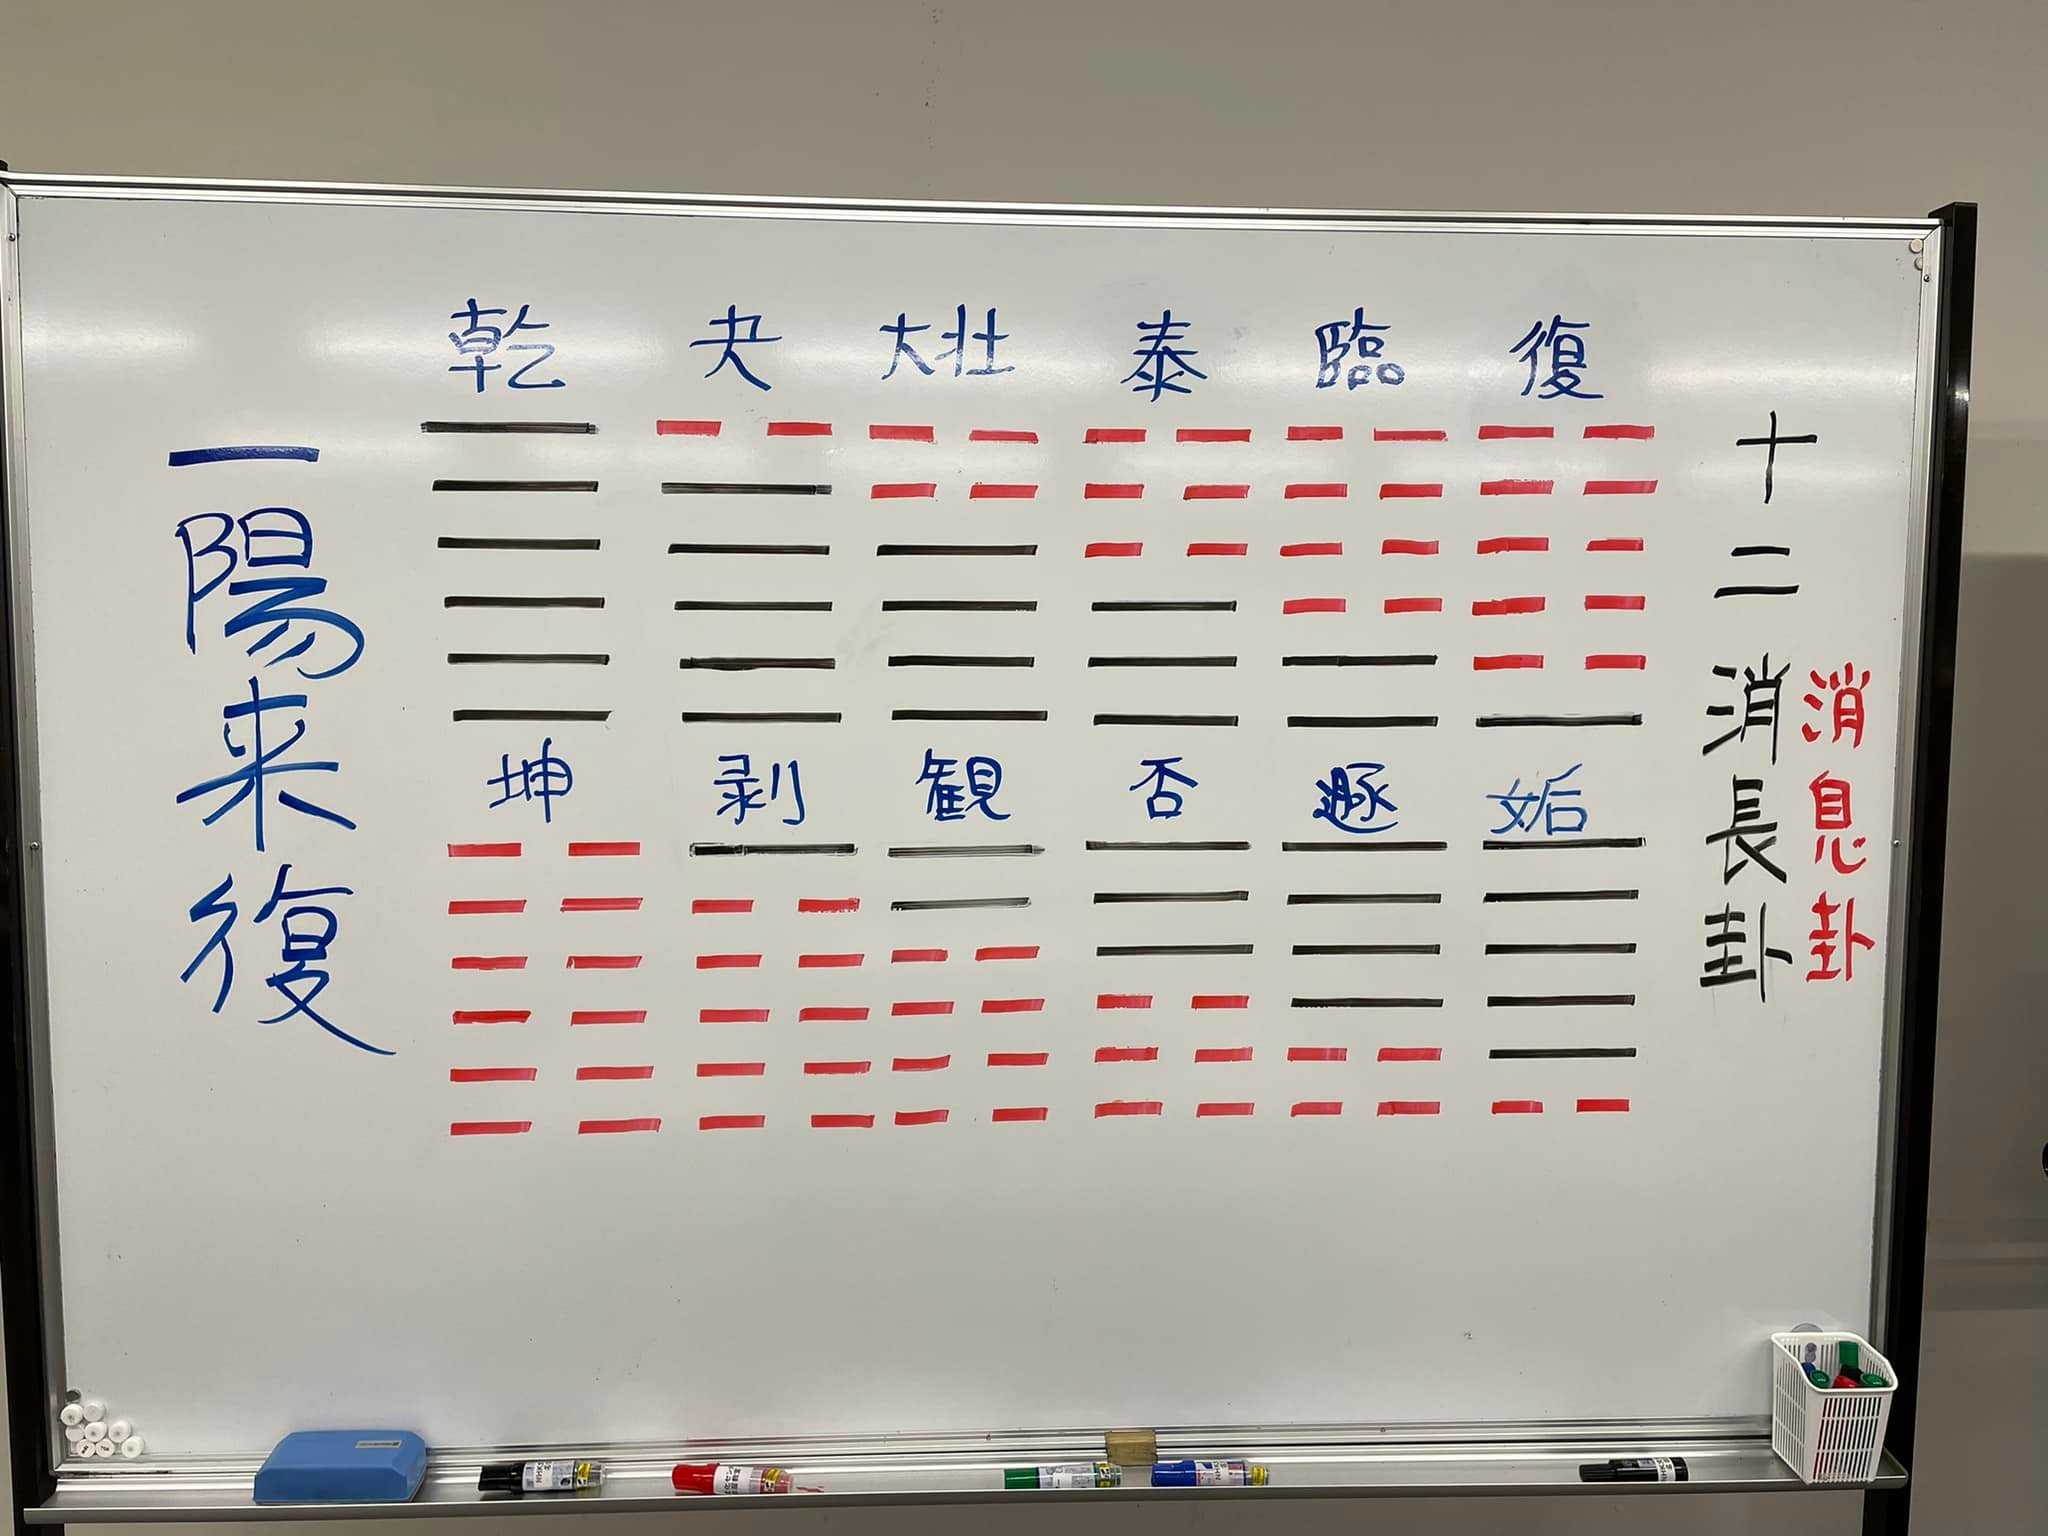 十二消長卦
消息卦
復 臨 泰 大壮 夬 乾
姤 遯 否 観 剥 坤
一陽来復